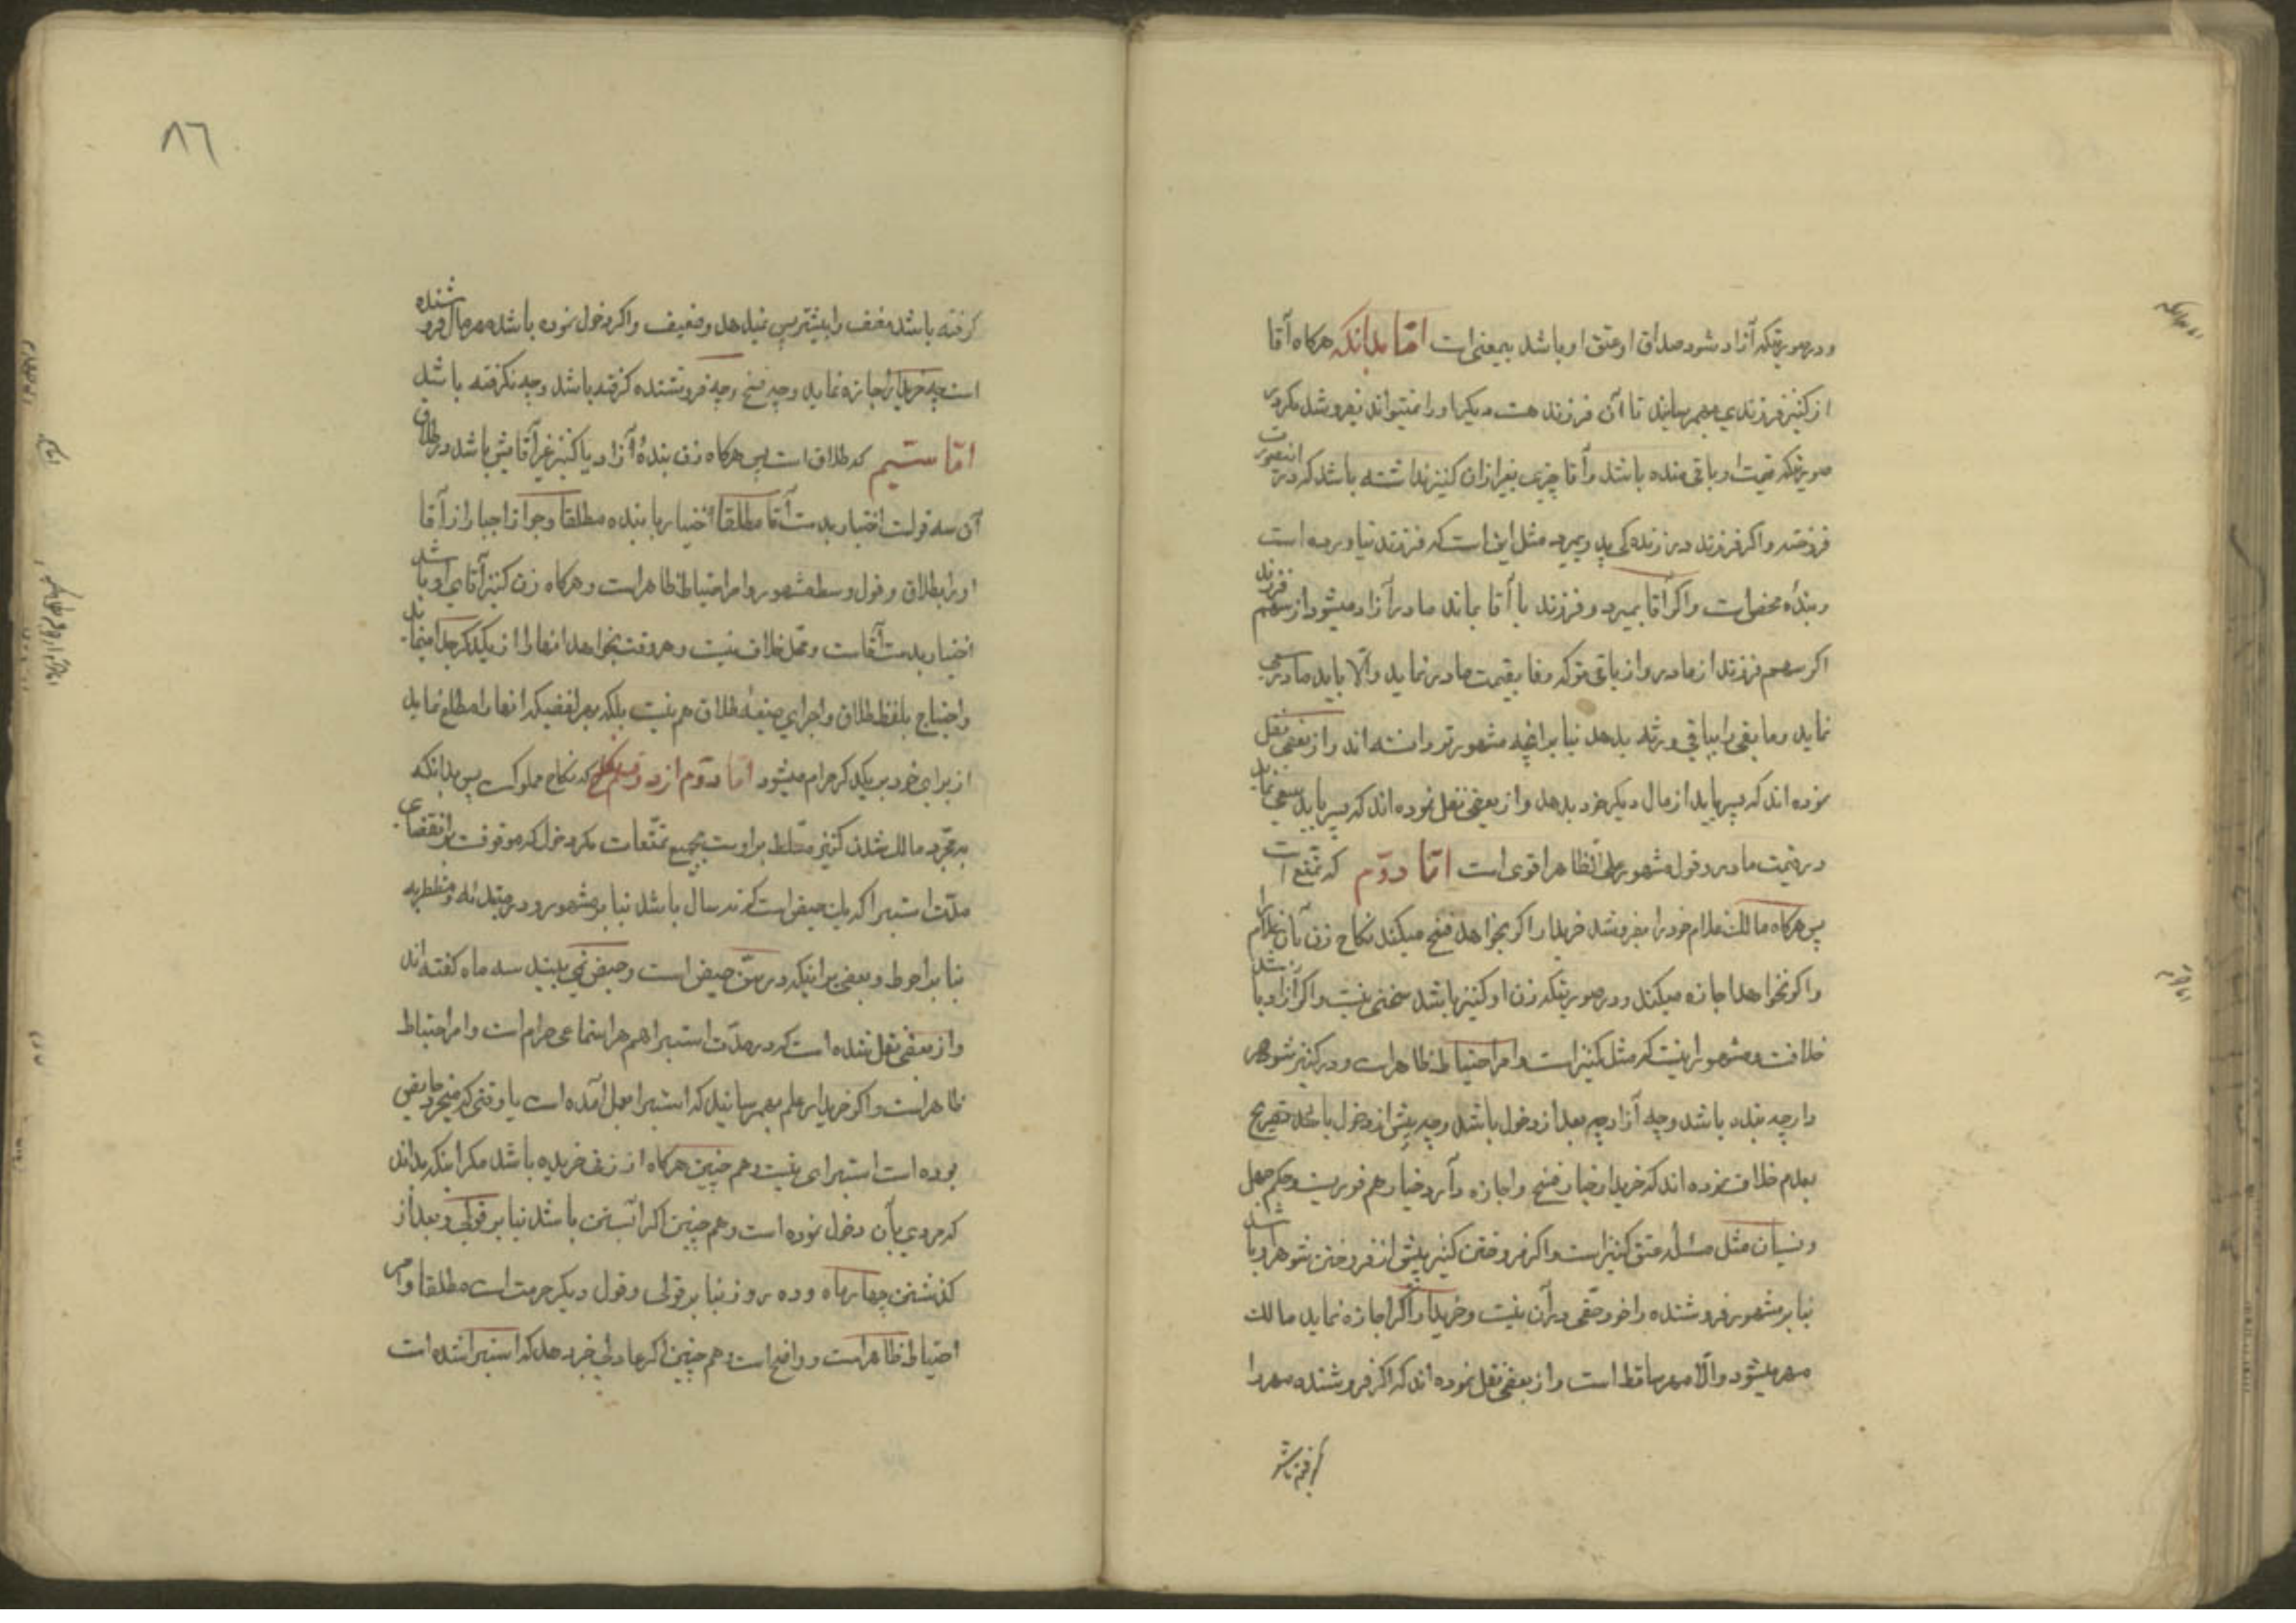 و در صورتیکه آزاد شود صداق او عتق او باشد بیمعنی است امّا بدانکه هرکاه آقا
از کنیز فرزندی بهمرساند تا آن فرزند هست دیکر او را نمیتواند بفروشد مکر در
صورتیکه قیمت او باقی مانده باشد و آقا چیزی بغیر از ان کنیز نداشته باشد که در انصورت
فروخته و اکر فرزند در زنده کی پدر بمیرد مثل این است که فرزند نیاورده است
و بنده محض است و اکر آقا بمیرد و فرزند با آقا بماند مادر آزاد میشود از سهم فرزند
اکر سهم فرزند از مادر و از باقی ترکه وفا بقیمت مادر نماید و الّا باید مادر سعی
نماید و ما بقی را بباقی ورثه بدهد بنا بر انچه مشهورتر دانسته اند و از بعضی نقل
نموده اند که پسر باید از مال دیکر خود بدهد و از بعضی نقل نموده اند که پسر باید سعی نماید
در قیمت مادر و قول مشهور علی الظاهر اقوی است امّا دوّم که تمتّع است
پس هرکاه مالک غلام خود را بفروشد خریدار اکر بخواهد فسخ میکند نکاح زن آن غلام را
و اکر نخواهد اجازه میکند و در صورتیکه زن او کنیز باشد سخنی نیست و اکر آزاد باشد
خلافست و مشهور اینست که مثل کنیز است و امر احتیاط ظاهر است و در کنیز شوهر
دار چه بنده باشد و چه آزاد چه بعد از دخول باشد و چه پیش از دخول باشد تصریح
بعدم خلاف نموده اند که خریدار خیار فسخ و اجازه دارد و خیار هم فوریست و حکم جهل
و نسیان مثل مسئله عتق کنیز است و اکر فروختن کنیز پیش از فروختن شوهر او باشد
بنا بر مشهور فروشنده را خود حقّی در آن نیست و خریدار اکر اجازه نماید مالک
مهر میشود و الّا مهر ساقط است و از بعضی نقل نموده اند که اکر فروشنده مهر را
کرفته باشد
٨٦
کرفته باشد نصف را بمشتری پس نمیدهد و ضعیف و اکر دخول نموده باشد مهر مال فروشنده
است چه خریدار اجازه نماید و چه فسخ و چه فروشنده کرفته باشد و چه نکرفته باشد
امّا سیّم که طلاق است پس هرکاه زن بنده آزاد یا کنیز غیر آقایش باشد در طلاق
آن سه قولست اختیار بدست آقا مطلقا اختیار با بنده مطلقا و جواز اجبار از آقا
او را بطلاق و قول وسط مشهور و امر احتیاط ظاهر است و هرکاه زن کنیز آقای او باشد
اختیار بدست آقاست و محل خلاف نیست و هر وقت بخواهد انها را از یکدیکر جدا مینماید
و احتیاج بلفظ طلاق و اجرای صیغه طلاق هم نیست بلکه بهر لفظیکه انها را مطلع نماید
از برای خود بر یکدیکر حرام میشود امّا دوّم از دو قسم نکاح که نکاح مملوک است پس بدانکه
بمجرّد مالک شدن کنیز مسلّط بر اوست بجمیع تمتّعات مکر دخول که موقوفست بر انقضای
مدّت استبرا که یک حیض است که نه سال باشد بنا بر مشهور و در مبتدئه و مضطربه
بنا بر احوط و بعضی بر اینکه در سنّ حیض است و حیض نمی بیند سه ماه کفته اند
و از بعضی نقل شده است که در مدّت استبرا هم هر استمتاعی حرام است و امر احتیاط
ظاهر است و اکر خریدار علم بهمرسانید که استبرا بعمل آمده است یا وقتی که میخرد حایض
بوده است استبرای نیست و هم چنین هرکاه از زن خریده باشد مکر اینکه بداند
که مردی بآن دخول نموده است و هم چنین اکر آبستن باشد بنا بر قولی و بعد از
کذشتن چهار ماه و ده روز بنا بر قولی و قول دیکر حرمت است مطلقا و امر
احتیاط ظاهر است و واضح است و هم چنین اکر عادلی خبر دهد که استبرا شده است